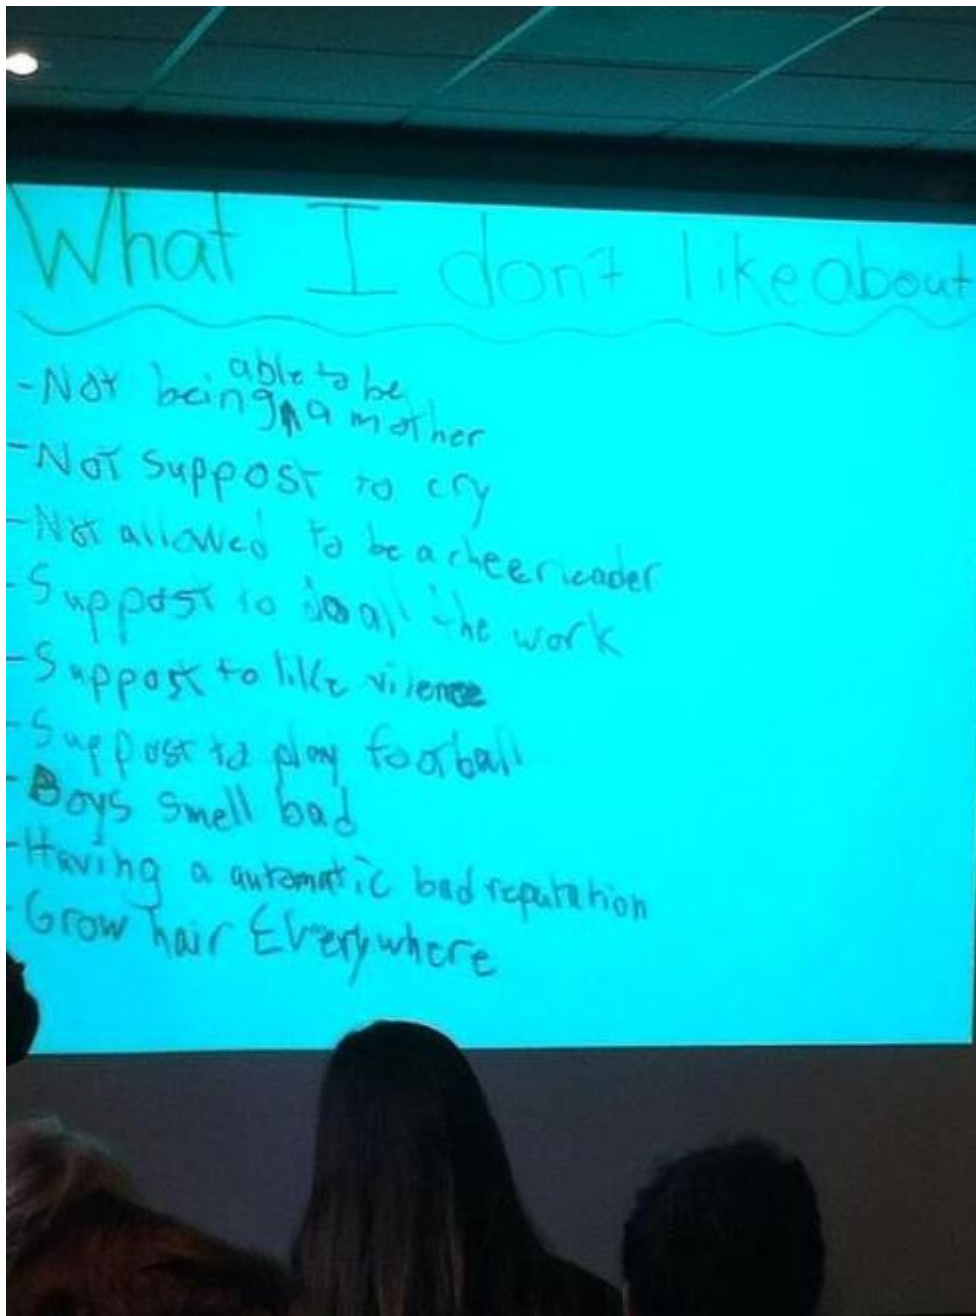 What I don't like about
able to be
- Not being a mother
- Not suppost to cry
- Not allowed to be a cheerleader
- Suppost to do all the work
- Suppost to like vilence
- Suppost to play football
- Boys smell bad
- Having a automatic bad reputation
- Grow hair Everywhere